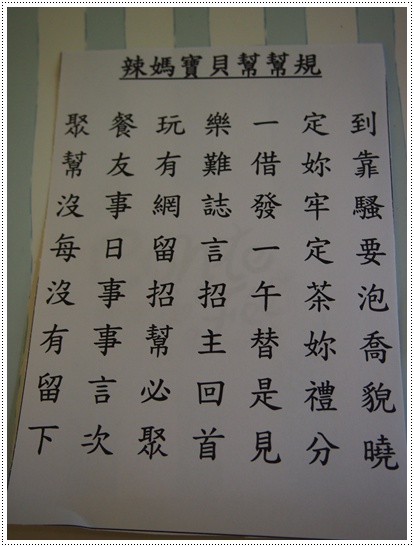 辣媽寶貝幫幫規
聚餐玩樂一定到
幫友有難一借妳靠
沒事網誌發牢騷
每日留言一定要
沒事招招午茶泡
有事幫主替妳喬
留言必回是禮貌
下次聚首見分曉